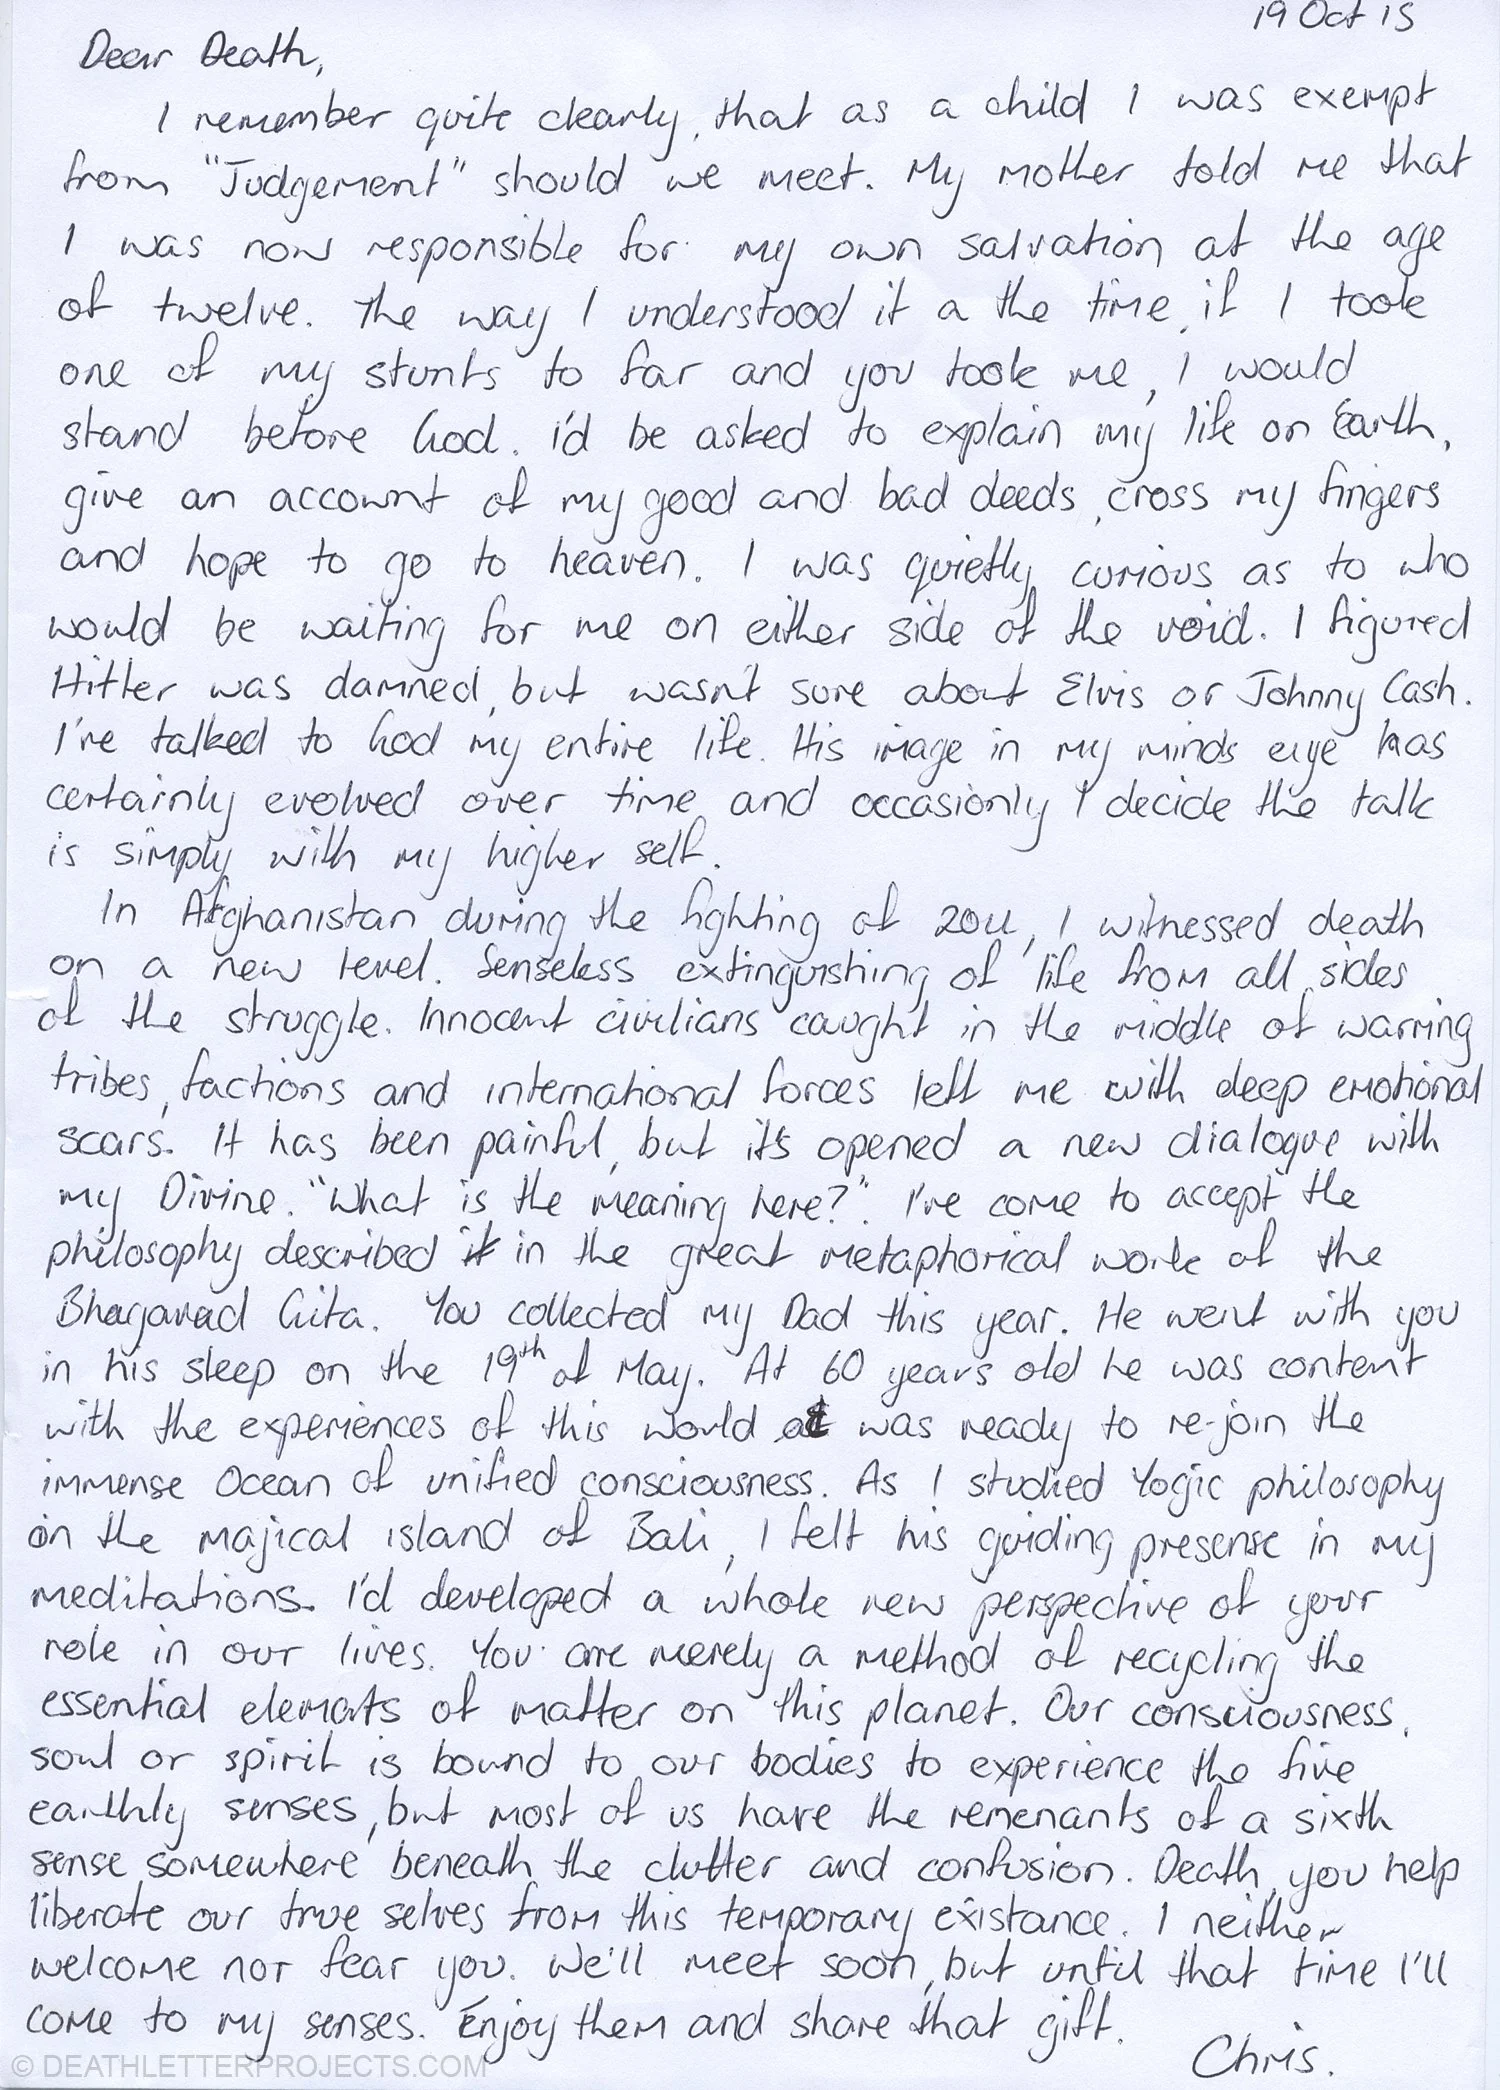 19 Oct 15
Dear Death,
I remember quite clearly, that as a child I was exempt
from "Judgement" should we meet. My mother told me that
I was now responsible for my own salvation at the age
of twelve. The way I understood it a the time, if I took
one of my stunts to far and you took me, I would
stand before God. i'd be asked to explain my life on Earth,
give an account of my good and bad deeds, cross my fingers
and hope to go to heaven. I was quietly curious as to who
would be waiting for me on either side of the void. I figured
Hitler was damned, but wasn't sure about Elvis or Johnny Cash.
I've talked to God my entire life. His image in my minds eye has
certainly evolved over time and occasionly I decide the talk
is simply with my higher self.
In Afghanistan during the fighting of 2011, I witnessed death
on a new level. Senseless extinguishing of life from all sides
of the struggle. Innocent civilians caught in the middle of warring
tribes, factions and international forces left me with deep emotional
scars. It has been painful, but it's opened a new dialogue with
my Divine. "What is the meaning here?". I've come to accept the
philosophy described it in the great metaphorical work of the
Bhagavad Gita. You collected my Dad this year. He went with you
in his sleep on the 19th of May. At 60 years old he was content
with the experiences of this world was ready to re-join the
immense Ocean of unified consciousness. As I studied Yogic philosophy
on the majical island of Bali, I felt his guiding presense in my
meditations. I'd developed a whole new perspective of your
role in our lives. You are merely a method of recycling the
essential elements of matter on this planet. Our consciousness,
soul or spirit is bound to our bodies to experience the five
earthly senses, but most of us have the remenants of a sixth
sense somewhere beneath the clutter and confusion. Death, you help
liberate our true selves from this temporary existance. I neither
welcome nor fear you. We'll meet soon, but until that time I'll
come to my senses. Enjoy them and share that gift.
Chris.
© DEATHLETTERPROJECTS.COM